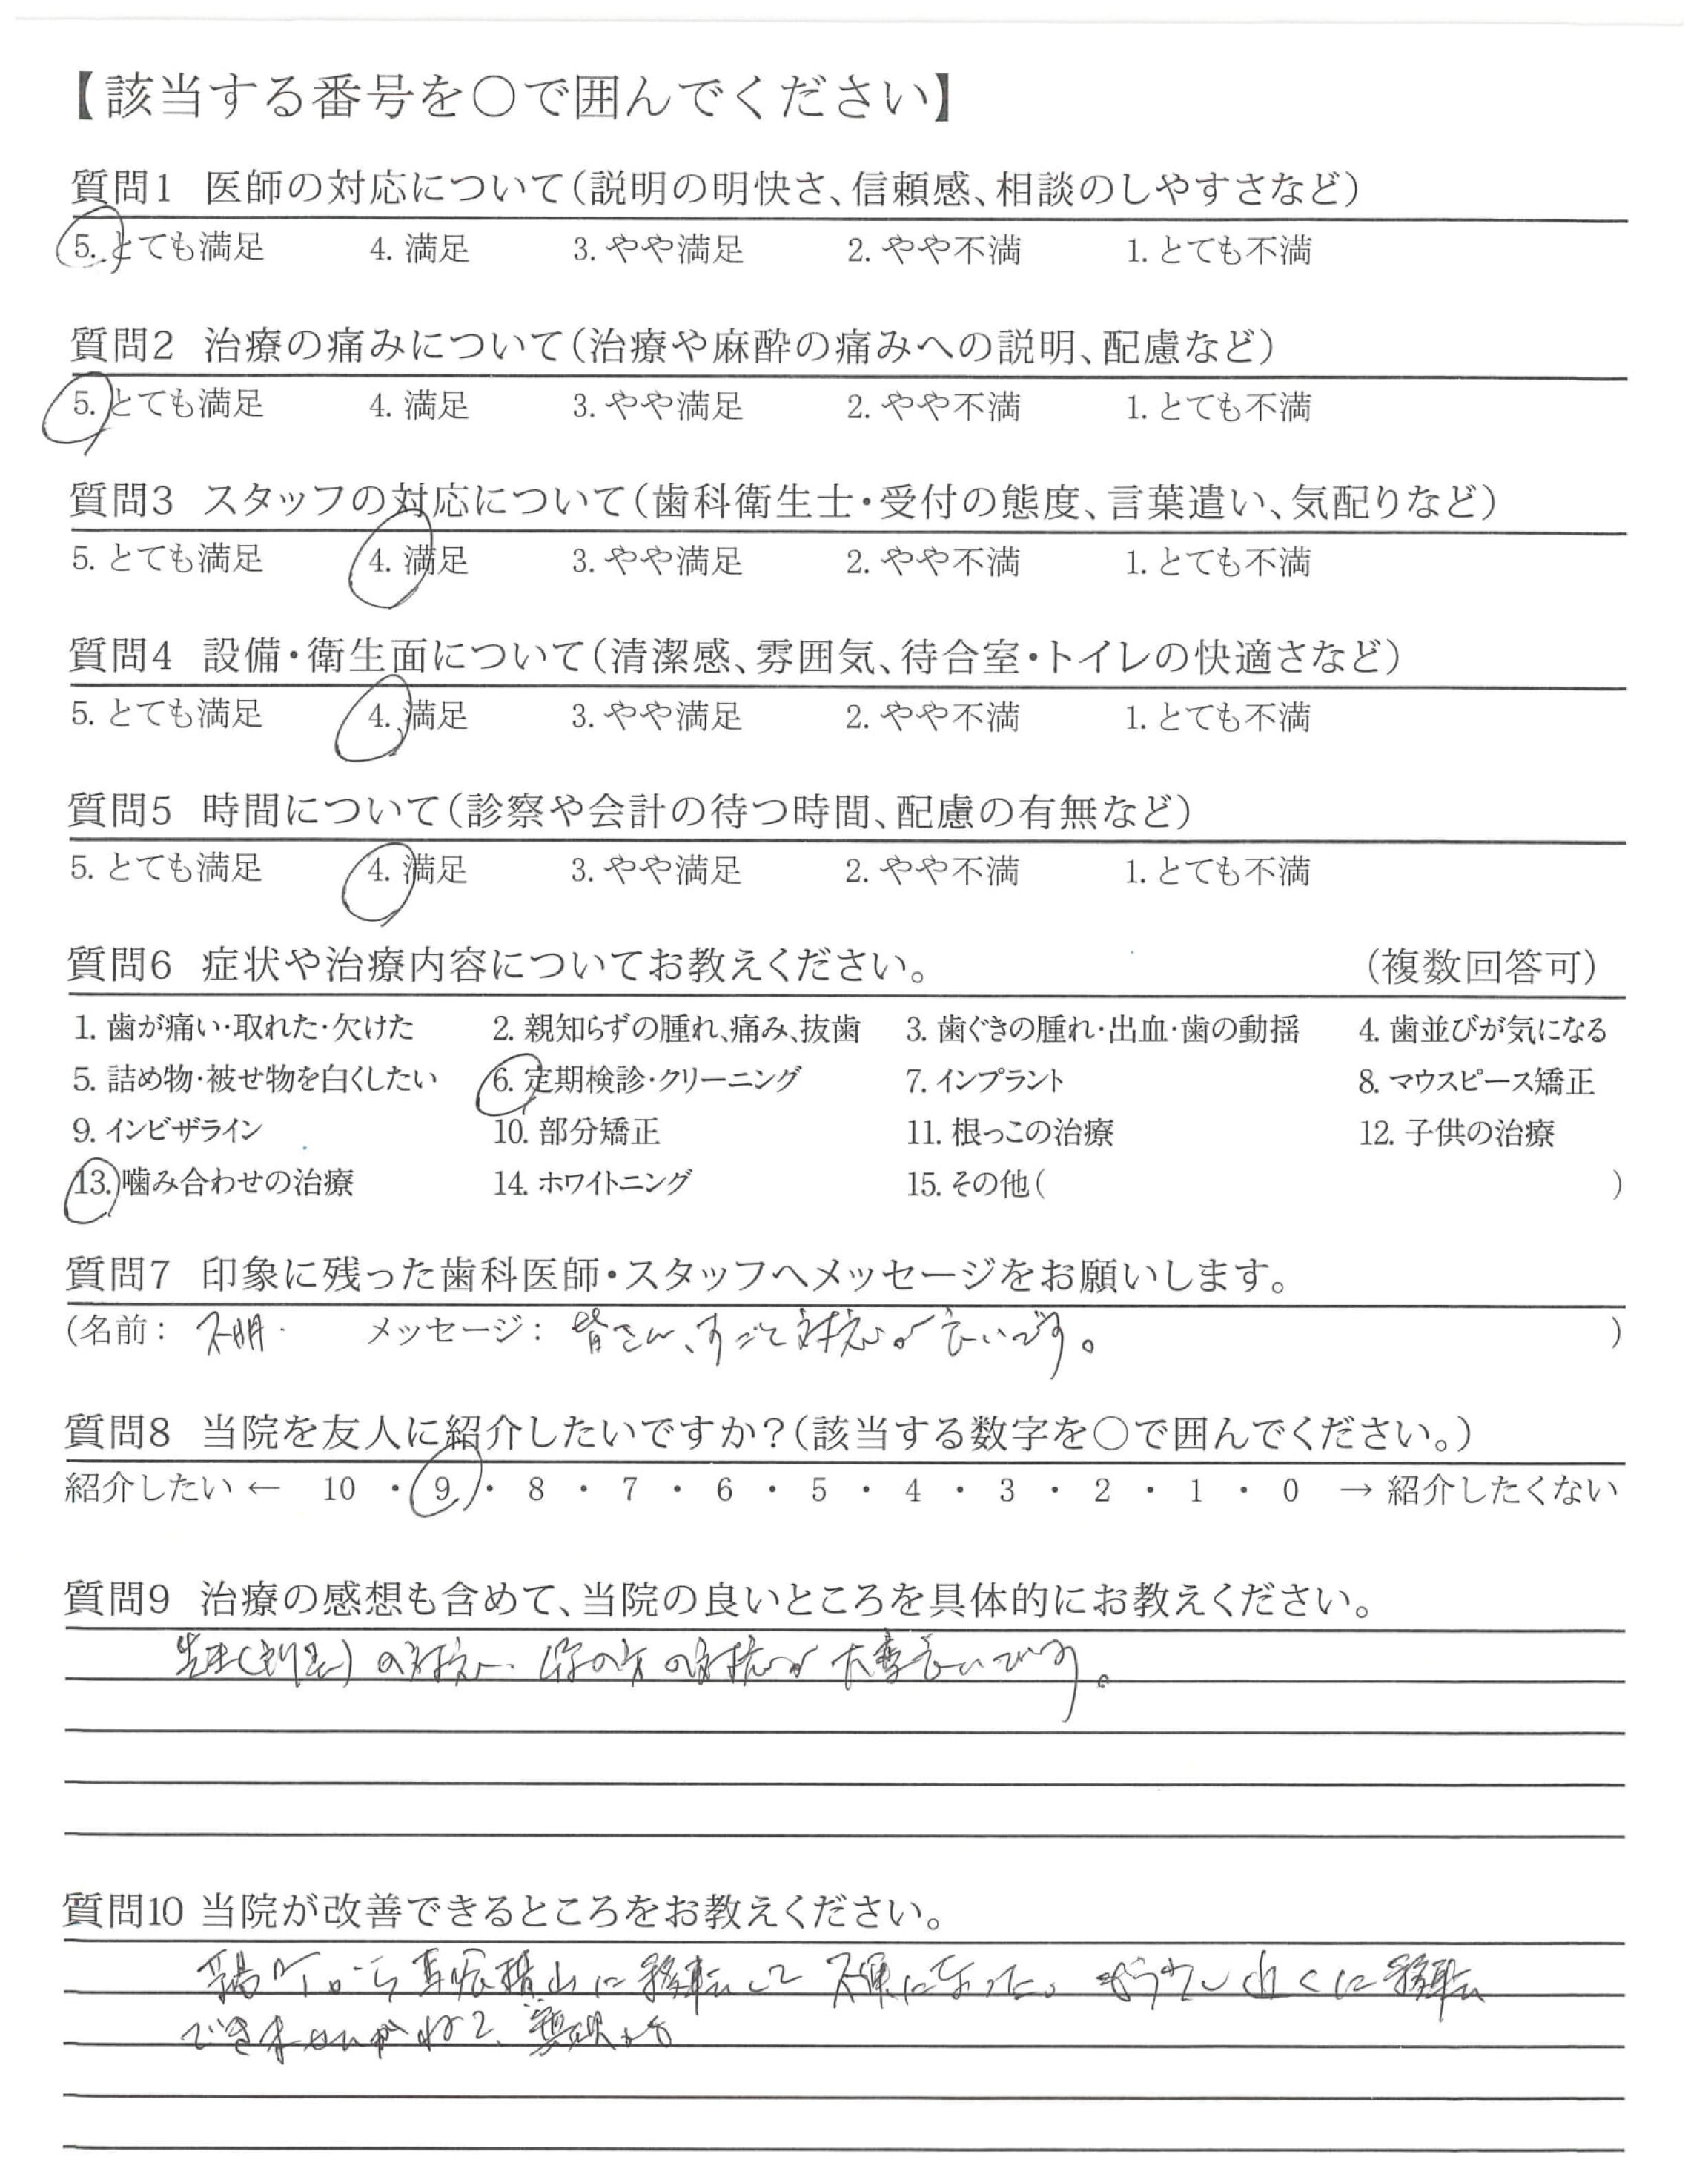 【該当する番号を○で囲んでください】
質問1 医師の対応について(説明の明快さ、信頼感、相談のしやすさなど)
5. とても満足 4. 満足 3. やや満足 2. やや不満 1. とても不満
質問2 治療の痛みについて(治療や麻酔の痛みへの説明、配慮など)
5. とても満足 4. 満足 3. やや満足 2. やや不満 1. とても不満
質問3 スタッフの対応について(歯科衛生士・受付の態度、言葉遣い、気配りなど)
5. とても満足 4. 満足 3. やや満足 2. やや不満 1. とても不満
質問4 設備・衛生面について(清潔感、雰囲気、待合室・トイレの快適さなど)
5. とても満足 4. 満足 3. やや満足 2. やや不満 1. とても不満
質問5 時間について(診察や会計の待つ時間、配慮の有無など)
5. とても満足 4. 満足 3. やや満足 2. やや不満 1. とても不満
質問6 症状や治療内容についてお教えください。 (複数回答可)
1. 歯が痛い・取れた・欠けた 2. 親知らずの腫れ、痛み、抜歯 3. 歯ぐきの腫れ・出血・歯の動揺 4. 歯並びが気になる
5. 詰め物・被せ物を白くしたい 6. 定期検診・クリーニング 7. インプラント 8. マウスピース矯正
9. インビザライン 10. 部分矯正 11. 根っこの治療 12. 子供の治療
13. 噛み合わせの治療 14. ホワイトニング 15. その他( )
質問7 印象に残った歯科医師・スタッフへメッセージをお願いします。
(名前: 不明 メッセージ: 皆さん、すごく対応が良いです。 )
質問8 当院を友人に紹介したいですか?(該当する数字を○で囲んでください。)
紹介したい ← 10 ・ 9 ・ 8 ・ 7 ・ 6 ・ 5 ・ 4 ・ 3 ・ 2 ・ 1 ・ 0 → 紹介したくない
質問9 治療の感想も含めて、当院の良いところを具体的にお教えください。
先生 の対応 の対応が大変良いです。
質問10 当院が改善できるところをお教えください。
から に移転して不便になった。もう少し近くに移転
できませんかね?